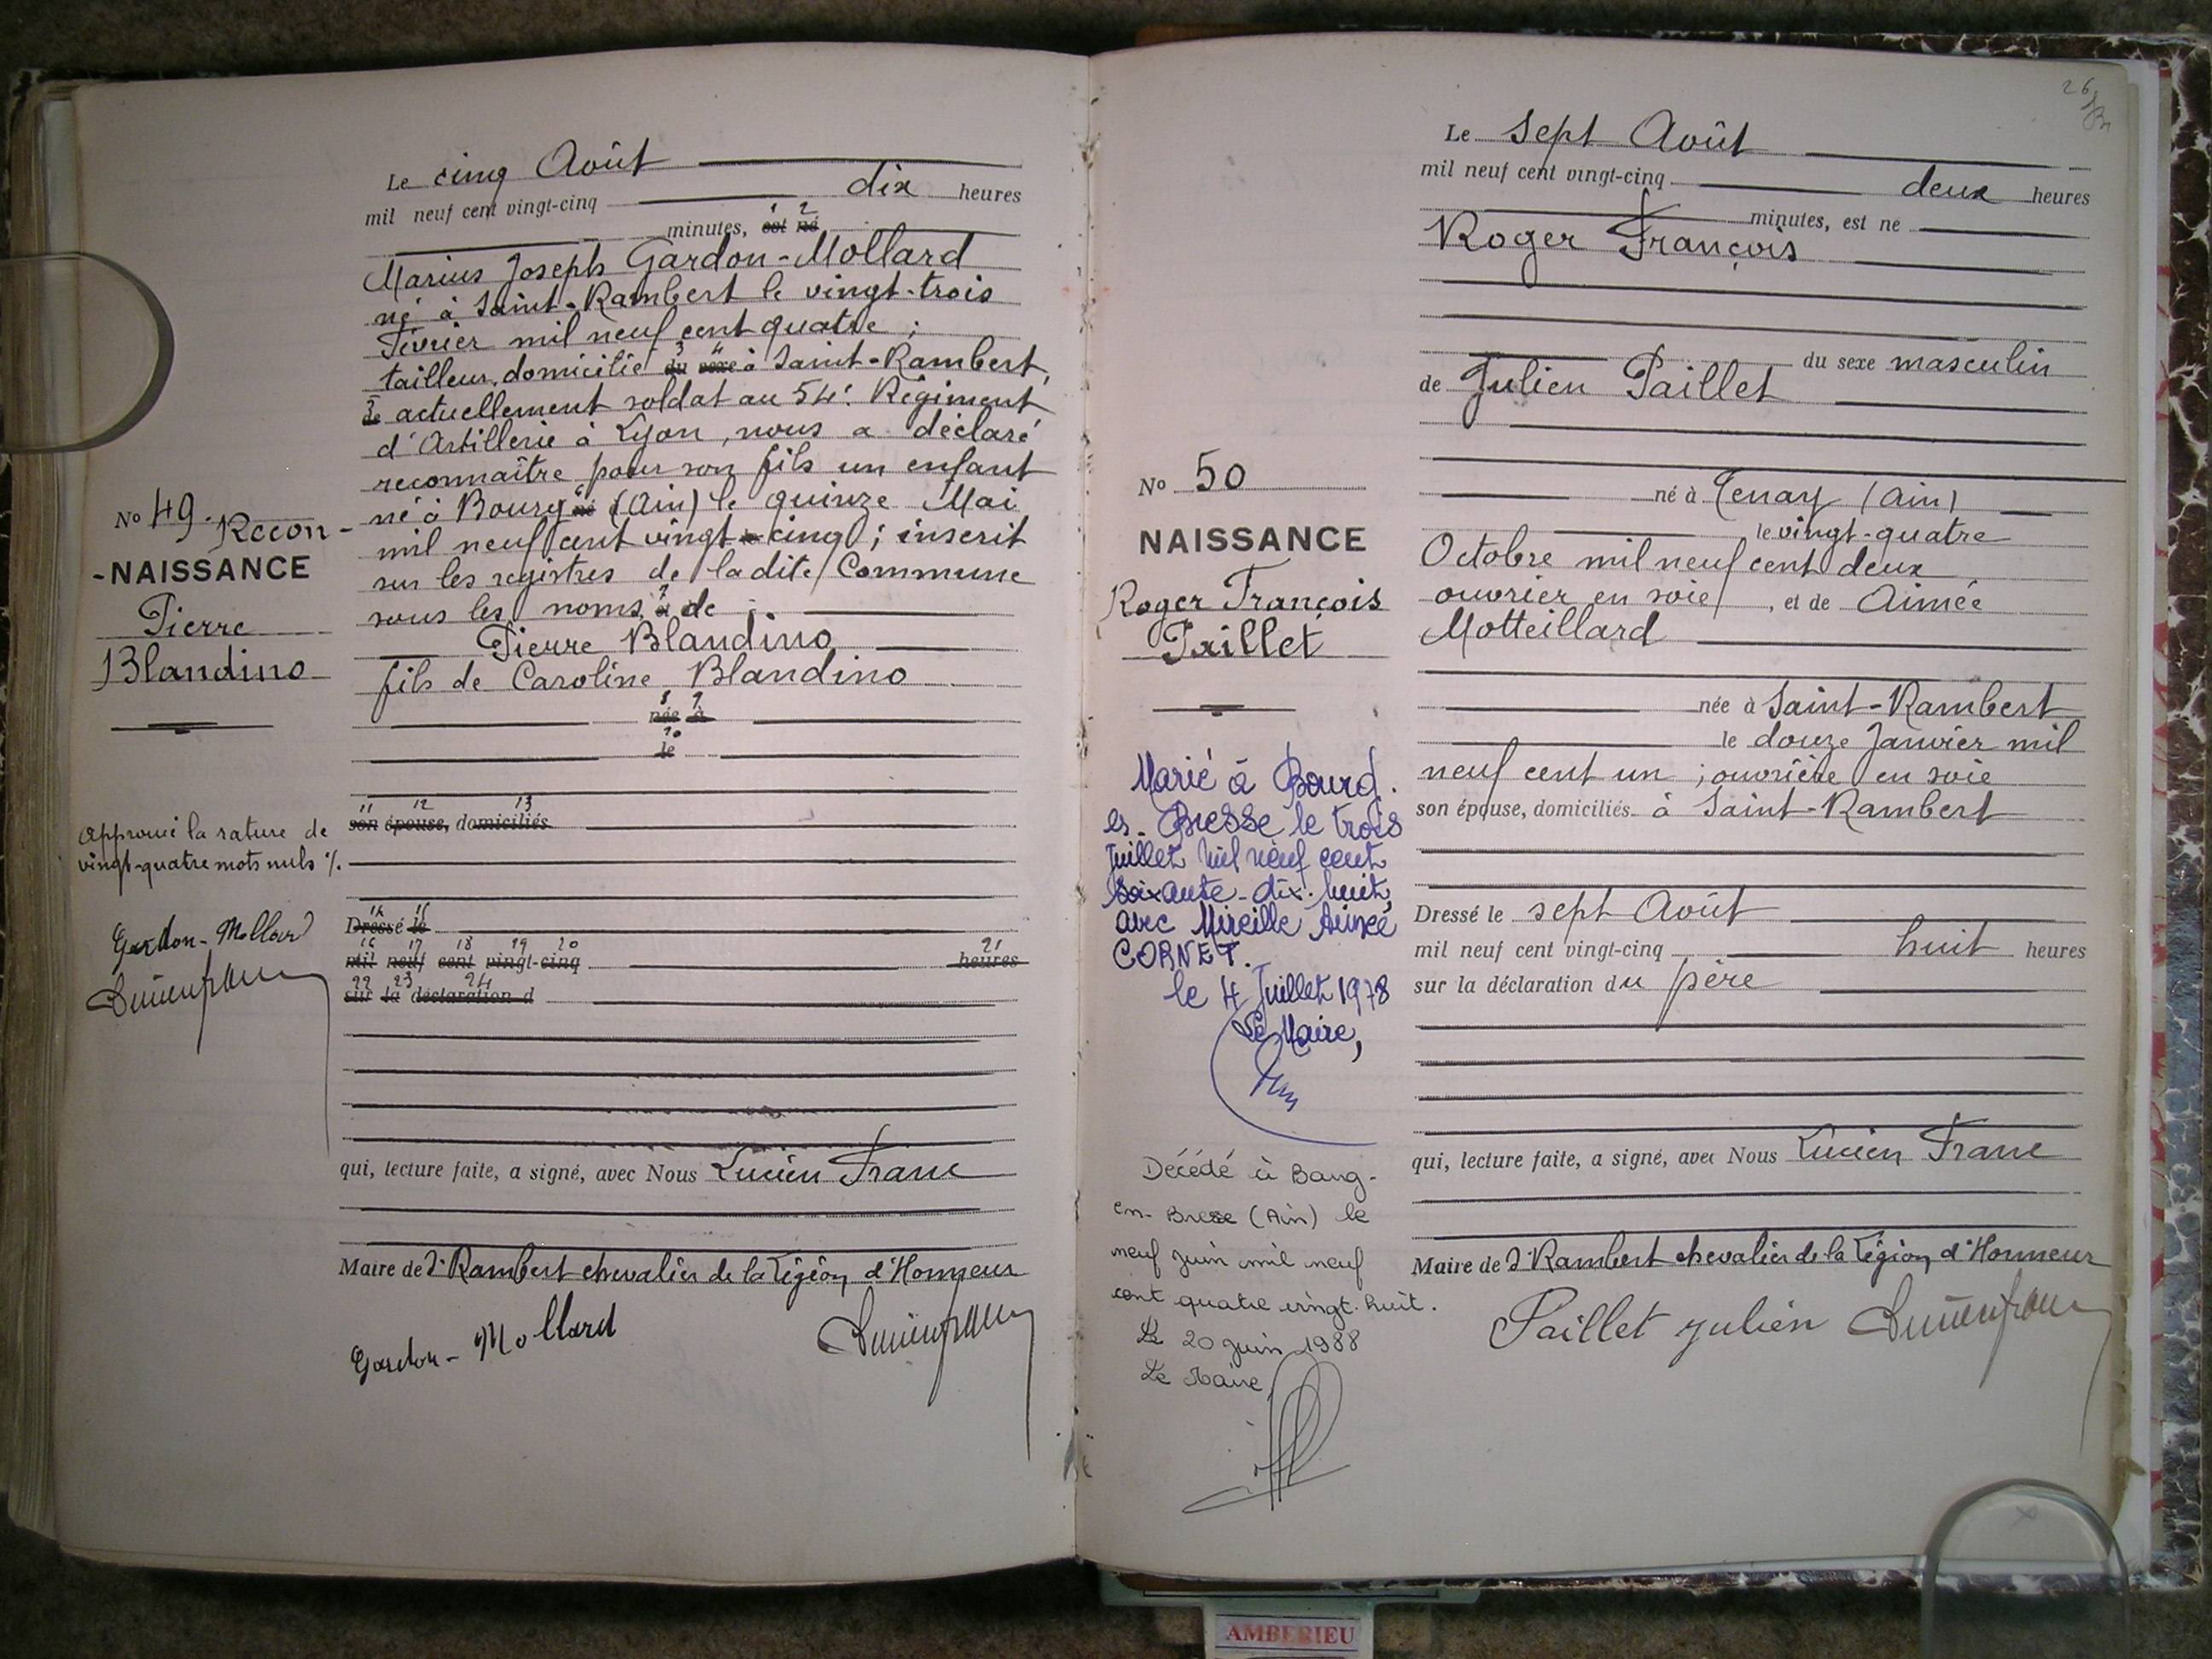 Le cinq Août
mil neuf cent vingt-cinq dix heures
1 2
minutes, est né
Marius Joseph Gardon-Mollard
né à Saint-Rambert le vingt-trois
Février mil neuf cent quatre ;
3 4
tailleur, domicilié du sexe à Saint-Rambert,
5
de actuellement soldat au 54e Régiment
d'Artillerie à Lyon, nous a déclaré
reconnaître pour son fils un enfant
6
né à Bourg né (Ain) le quinze Mai
mil neuf cent vingt-cinq ; inscrit
sur les registres de la dite Commune
7
sous les noms à de :
Pierre Blandino
fils de Caroline Blandino
8 9
née à
10
le
11 12 13
son épouse, domiciliés
14 15
Dressé le
16 17 18 19 20 21
mil neuf cent vingt-cinq heures
22 23 24
sur la déclaration d
qui, lecture faite, a signé, avec Nous Lucien Franc
Maire de St Rambert chevalier de la Légion d'Honneur
Gardon-Mollard
No 49. Recon-
-NAISSANCE
Pierre
Blandino
Approuvé la rature de
vingt-quatre mots nuls %.
Gardon-Mollard
26
Le sept Août
mil neuf cent vingt-cinq deux heures
minutes, est né
Roger François
du sexe masculin
de Julien Paillet
né à Tenay (Ain)
le vingt-quatre
Octobre mil neuf cent deux
ouvrier en soie, et de Aimée
Motteillard
née à Saint-Rambert
le douze Janvier mil
neuf cent un ; ouvrière en soie
son épouse, domiciliés à Saint-Rambert
Dressé le sept Août
mil neuf cent vingt-cinq huit heures
sur la déclaration du père
qui, lecture faite, a signé, avec Nous Lucien Franc
Maire de St Rambert chevalier de la Légion d'Honneur
Paillet Julien
No 50
NAISSANCE
Roger François
Paillet
Marié à Bourg.
en. Bresse le trois
Juillet mil neuf cent
soixante-dix-huit
avec Mireille Aimée
CORNET.
le 4 Juillet 1978
Le Maire,
Décédé à Bourg-
en-Bresse (Ain) le
neuf juin mil neuf
cent quatre vingt-huit.
Le 20 juin 1988
Le Maire,
AMBERIEU